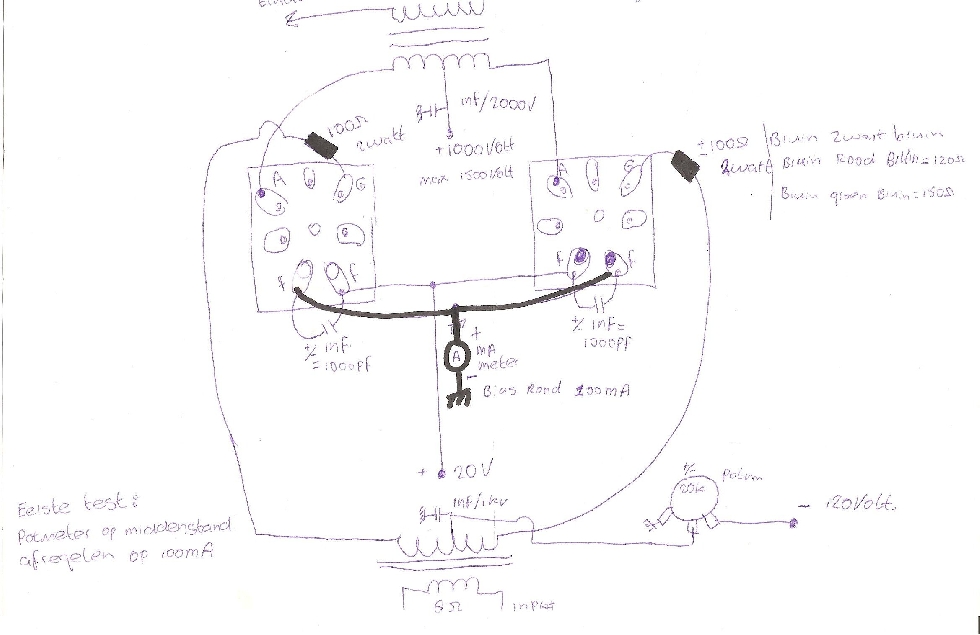 100Ω
2watt
1nF/2000V
+1000Volt
max 1500Volt
± 100Ω
2watt
Bruin Zwart bruin
Bruin Rood Bruin = 120Ω
Bruin groen Bruin = 150Ω
A
G
F
F
A
G
F
F
+/- 1nF
= 1000pF
+/- 1nF =
1000pF
+
A
mA
meter
-
Bias Rond 100mA
+ 20V
1nF/1kv
Eerste test:
Potmeter op middenstand
afregelen op 100mA
+/-
25k
Potm
- 120Volt.
8Ω
input